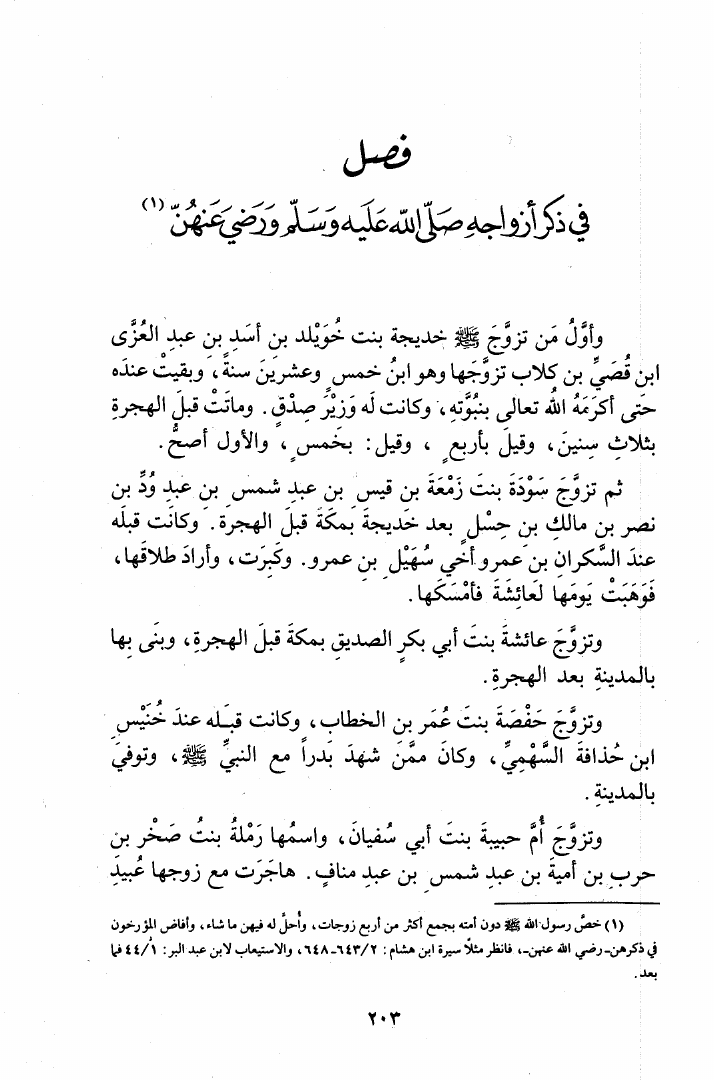 فصل
في ذكر أزواجه صَلّى الله عَلَيه وَسَلّم وَرَضيَ عَنهُنّ (١)
وأوَّلُ مَن تزوَّجَ ﷺ خديجة بنت خُوَيْلد بن أسَدِ بنِ عبدِ العُزَّى
ابن قُصَيِّ بن كلاب تزوَّجَها وهو ابنُ خمسٍ وعشرينَ سنةً، وبقيتْ عندَه
حتى أكرَمَهُ اللهُ تعالى بنُبُوَّتهِ، وكانت لَه وَزيْرَ صِدْقٍ. وماتَتْ قبلَ الهجرةِ
بثلاثِ سِنينَ، وقيلَ بأربعٍ، وقيل: بخمسٍ، والأول أصحُّ.
ثم تزوَّجَ سَوْدَةَ بنتَ زَمْعَةَ بن قيسِ بن عبدِ شمسِ بنِ عبدِ وُدِّ بن
نصر بن مالكِ بن حِسْلٍ بعد خديجةَ بمكةَ قبلَ الهجرة. وكانت قبلَه
عندَ السَّكران بن عمرو أخي سُهَيْلِ بن عمرو. وكَبِرَت، وأرادَ طلاقَها،
فَوَهَبَتْ يَومَها لعائشَةَ فأمْسَكَها.
وتزوَّجَ عائشةَ بنتَ أبي بكرٍ الصديقِ بمكةَ قبلَ الهجرةِ، وبنَى بِها
بالمدينةِ بعد الهجرةِ.
وتزوَّجَ حَفْصَةَ بنتَ عُمَر بن الخطاب، وكانت قبَله عندَ خُنَيْسِ
ابن حُذافةَ السَّهْميِّ، وكانَ ممَّن شهدَ بَدراً مع النبيِّ ﷺ، وتوفيَ
بالمدينةِ.
وتزوَّجَ أُمَّ حبيبةَ بنتَ أبي سُفيانَ، واسمُها رَمْلةُ بنتُ صَخْر بن
حربِ بن أميةَ بن عبدِ شمسِ بن عبدِ منافٍ. هاجَرَت مع زوجها عُبيدِ
(١) خصَّ رسول الله ﷺ دون أمته بجمع أكثر من أربع زوجات، وأُحلَّ له فيهن ما شاء، وأفاض المؤرخون
في ذكرهن ـ رضي الله عنهن ـ، فانظر مثلاً سيرة ابن هشام: ٢/٦٤٣ـ٦٤٨، والاستيعاب لابن عبد البر: ١/٤٤ فما
بعد.
٢٠٣